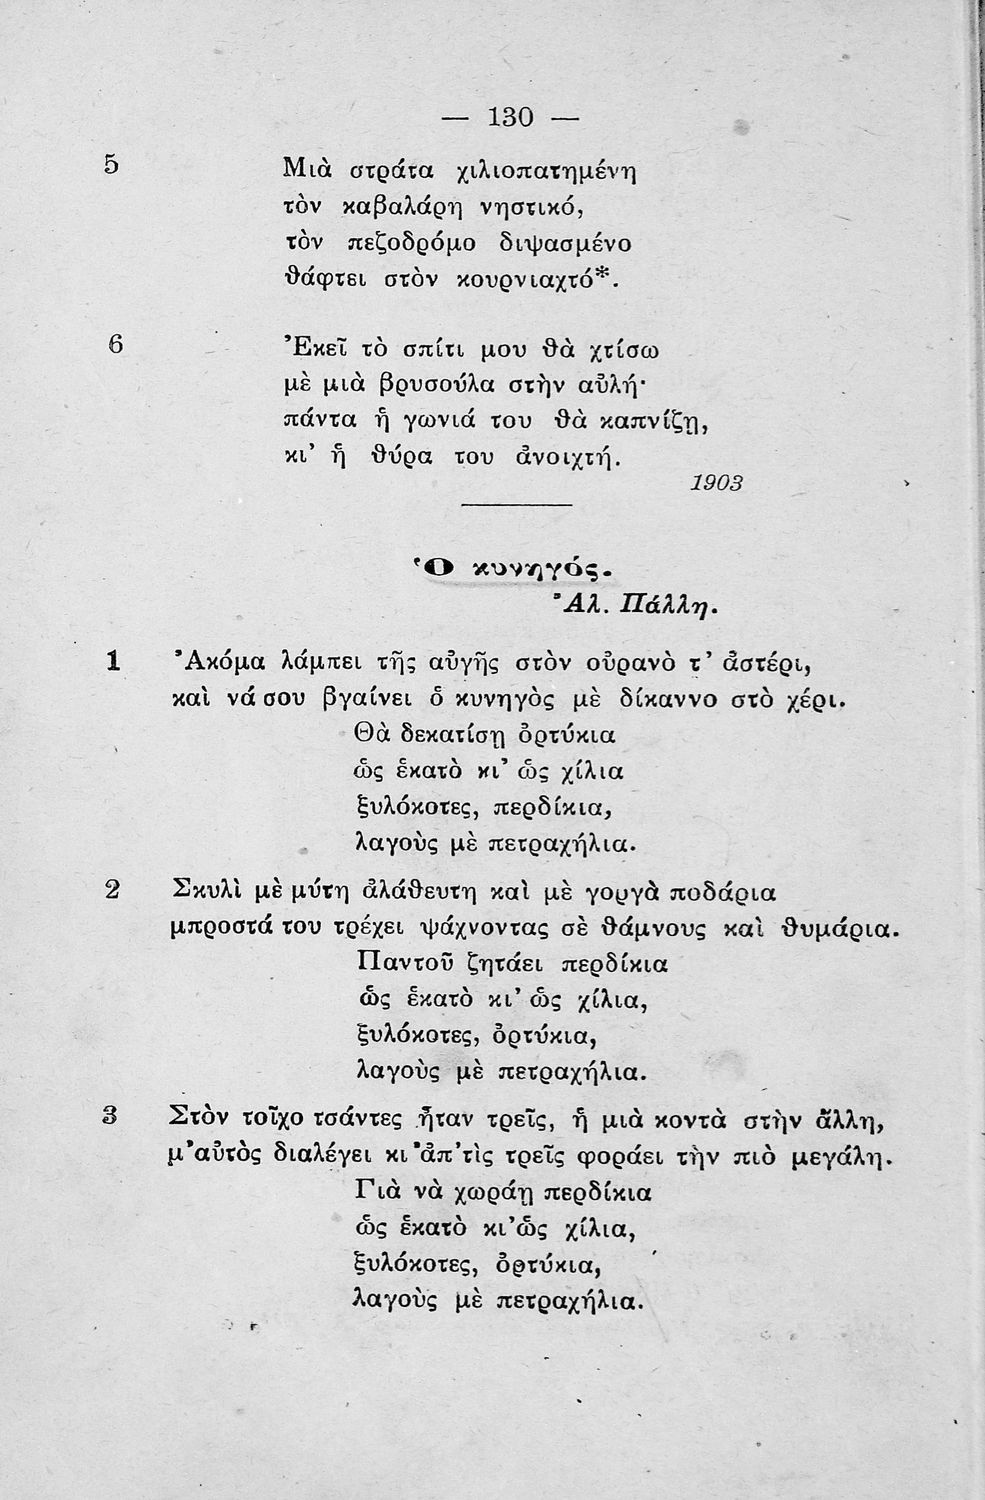 — 130 —
5 Μιὰ στράτα χιλιοπατημένη
τὸν καβαλάρη νηστικό,
τὸν πεζοδρόμο διψασμένο
θάφτει στὸν κουρνιαχτό*.
6 Ἐκεῖ τὸ σπίτι μου θὰ χτίσω
μὲ μιὰ βρυσούλα στὴν αὐλή·
πάντα ἡ γωνιά του θὰ καπνίζῃ,
κι’ ἡ θύρα του ἀνοιχτή.
1903
Ὁ κυνηγός.
Ἀλ. Πάλλη.
1 Ἀκόμα λάμπει τῆς αὐγῆς στὸν οὐρανὸ τ’ ἀστέρι,
καὶ νά σου βγαίνει ὁ κυνηγὸς μὲ δίκαννο στὸ χέρι.
Θὰ δεκατίσῃ ὀρτύκια
ὡς ἑκατὸ κι’ ὡς χίλια
ξυλόκοτες, περδίκια,
λαγοὺς μὲ πετραχήλια.
2 Σκυλὶ μὲ μύτη ἀλάθευτη καὶ μὲ γοργὰ ποδάρια
μπροστά του τρέχει ψάχνοντας σὲ θάμνους καὶ θυμάρια.
Παντοῦ ζητάει περδίκια
ὡς ἑκατὸ κι’ ὡς χίλια,
ξυλόκοτες, ὀρτύκια,
λαγοὺς μὲ πετραχήλια.
3 Στὸν τοῖχο τσάντες ἦταν τρεῖς, ἡ μιὰ κοντὰ στὴν ἄλλη,
μ’ αὐτὸς διαλέγει κι ’ἀπ’ τὶς τρεῖς φοράει τὴν πιὸ μεγάλη.
Γιὰ νὰ χωράῃ περδίκια
ὡς ἑκατὸ κι’ ὡς χίλια,
ξυλόκοτες, ὀρτύκια,
λαγοὺς μὲ πετραχήλια.